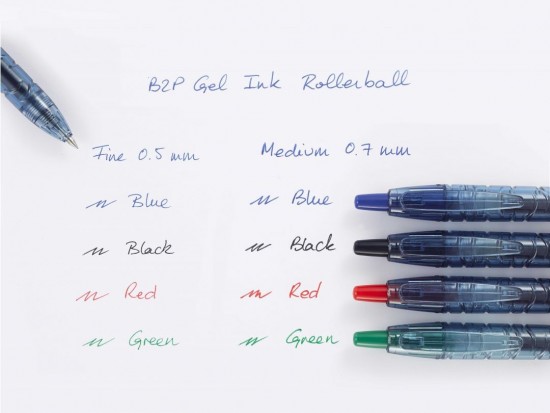 B2P Gel Ink Rollerball
Fine 0.5 mm Medium 0.7 mm
Blue Blue
Black Black
Red Red
Green Green